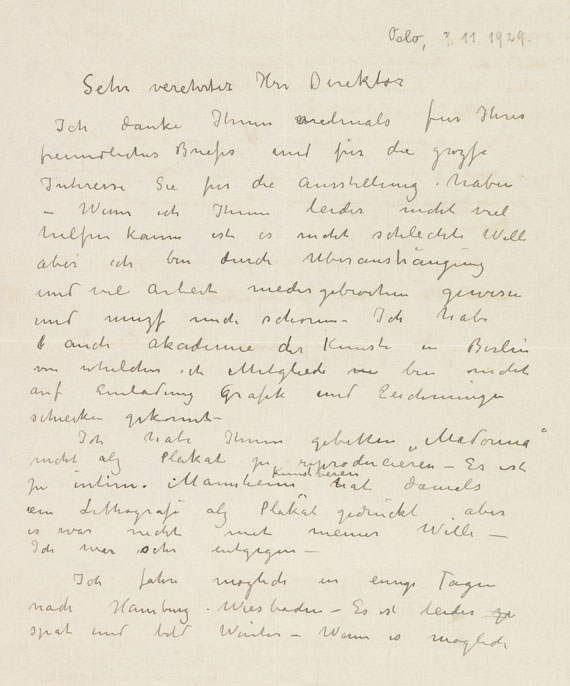 Oslo, 7. 11. 1929.
Sehr verehrter Herr Direktor
Ich danke Ihnen vielmals für Ihres
freundliches Briefes und für die grozse
Interesse Sie für die Ausstellung haben
– Wenn ich Ihnen leider nicht viel
helfen kann ist es nicht schlechte Wille
aber ich bin durch Überanstrangung
und viel Arbeit niedergebrochen gewesen
und muszs mich schonen – Ich habe
auch Akademie der Künste in Berlin
von ich Mitglied bin nicht
auf Einladung Grafik und Zeichnungen
schicken gekonnt –
Ich habe Ihnen gebetten „Madonna“
nicht alz Plakat zu reproducieren – Es ist
zu intim. Mannheim Kunstverein hat damals
ein Lithografi alz Plakat gedrückt aber
es war nicht mit meiner Wille –
Ich war sehr entgegen –
Ich fahre möglich in einige Tagen
nach Hamburg. Wiesbaden – Es ist leider zu
spät und bald Winter – Wenn es möglich